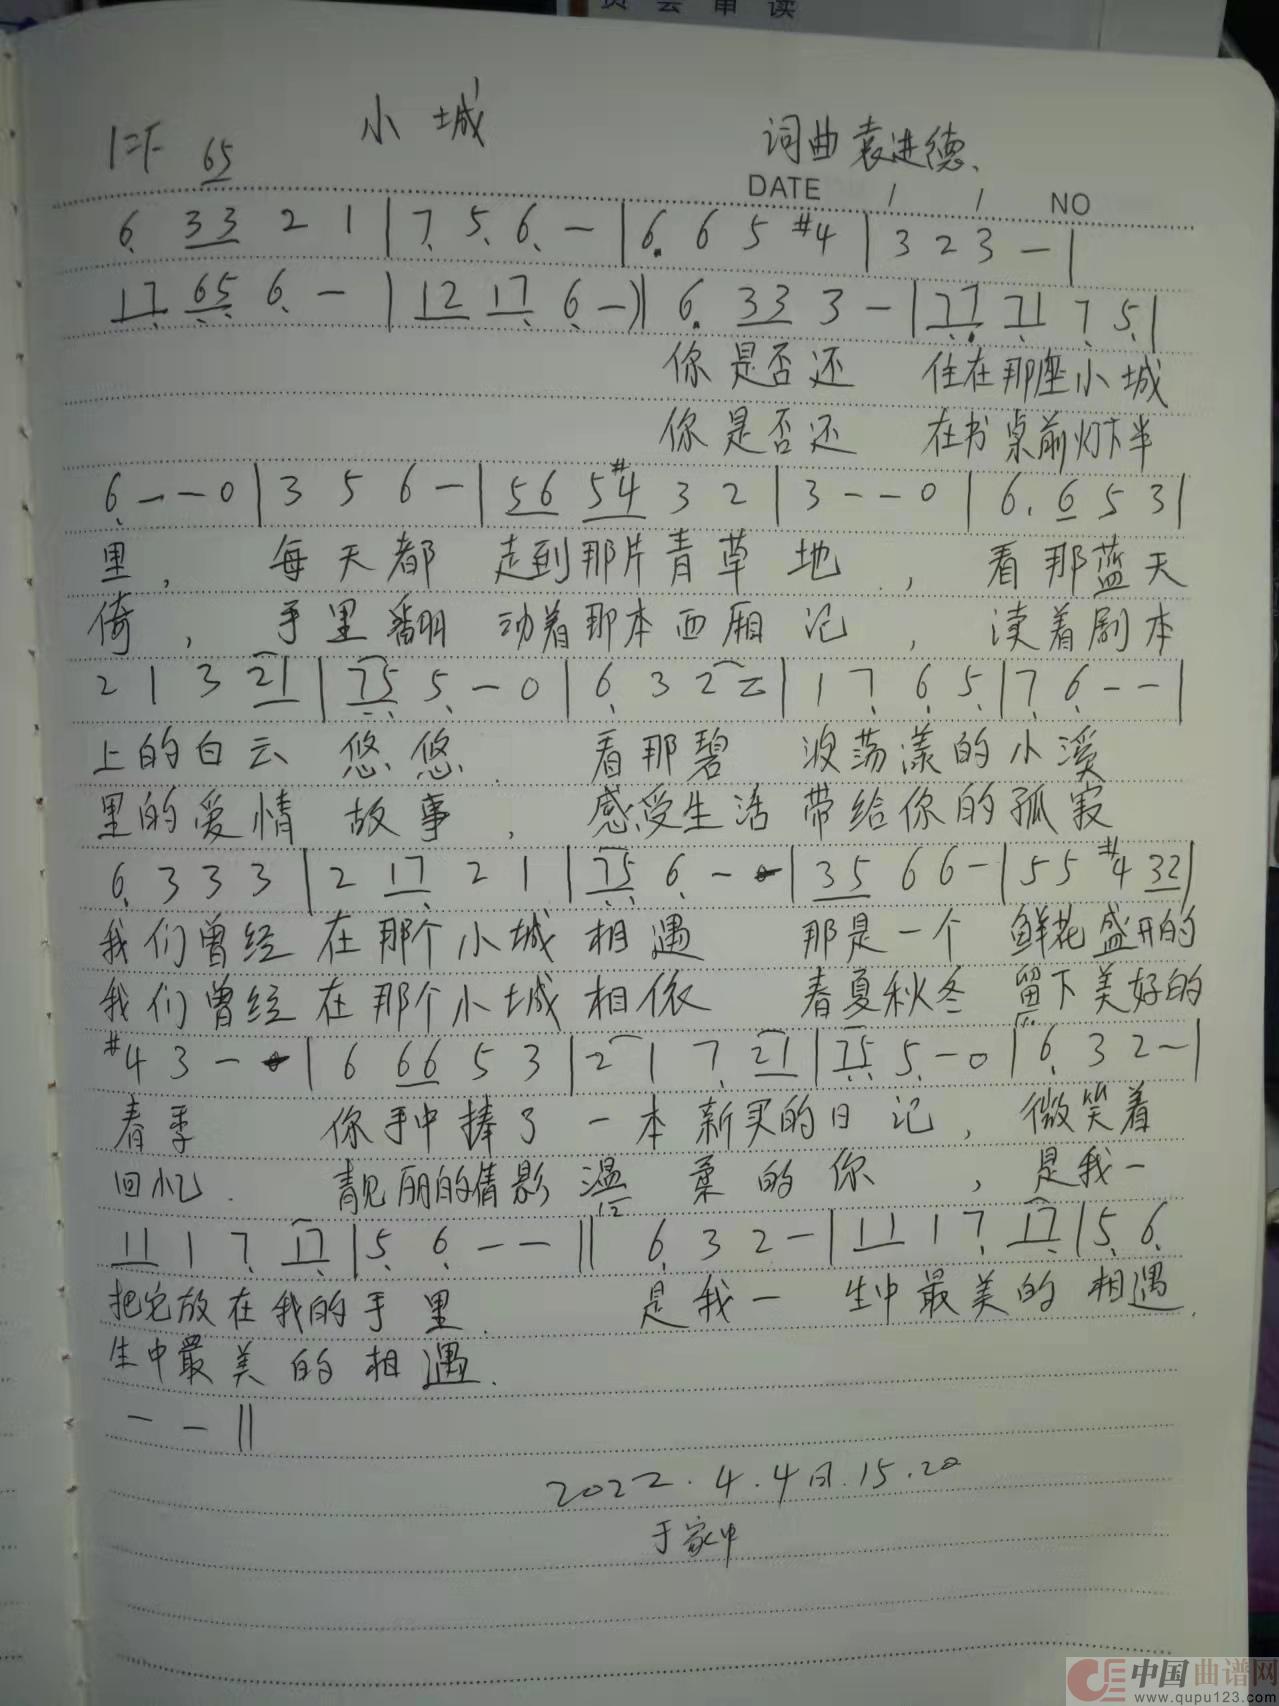 员会审读
1=F 65 小城 词曲袁进德、
DATE / / NO
6 33 2 1 | 7 5 6 - | 6. 6 5 #4 | 3 2 3 - |
17 65 6 - | 12 17 6 - )‖ 6 33 3 - | 77 71 7 5 |
你是否还 住在那座小城
你是否还 在书桌前灯下半
6 - - 0 | 3 5 6 - | 56 5#4 3 2 | 3 - - 0 | 6. 6 5 3 |
里, 每天都 走到那片青草地, 看那蓝天
倚, 手里翻 动着那本西厢记, 读着剧本
2 1 3 21 | 75 5 - 0 | 6 3 2 2 | 1 7 6 5 | 7 6 - - |
上的白云 悠悠. 看那碧 波荡漾的小溪
里的爱情 故事, 感受生活 带给你的孤寂
6 3 3 3 | 2 17 2 1 | 75 6 - | 35 6 6 - | 5 5 #4 32 |
我们曾经 在那个小城 相遇 那是一个 鲜花盛开的
我们曾经 在那个小城 相依 春夏秋冬 留下美好的
#4 3 - | 6 66 5 3 | 2 1 7 21 | 75 5 - 0 | 6 3 2 - |
春季 你手中捧了 一本新买的日记, 微笑着
回忆. 靓丽的倩影 温柔的你, 是我一
11 1 7 17 | 5 6 - - ‖ 6 3 2 - | 11 1 7 17 | 5 6
把它放在我的手里. 是我一 生中最美的 相遇.
生中最美的相遇.
- - ‖
2022.4.4日.15.20
于家中
中国曲谱网
www.qupu123.com